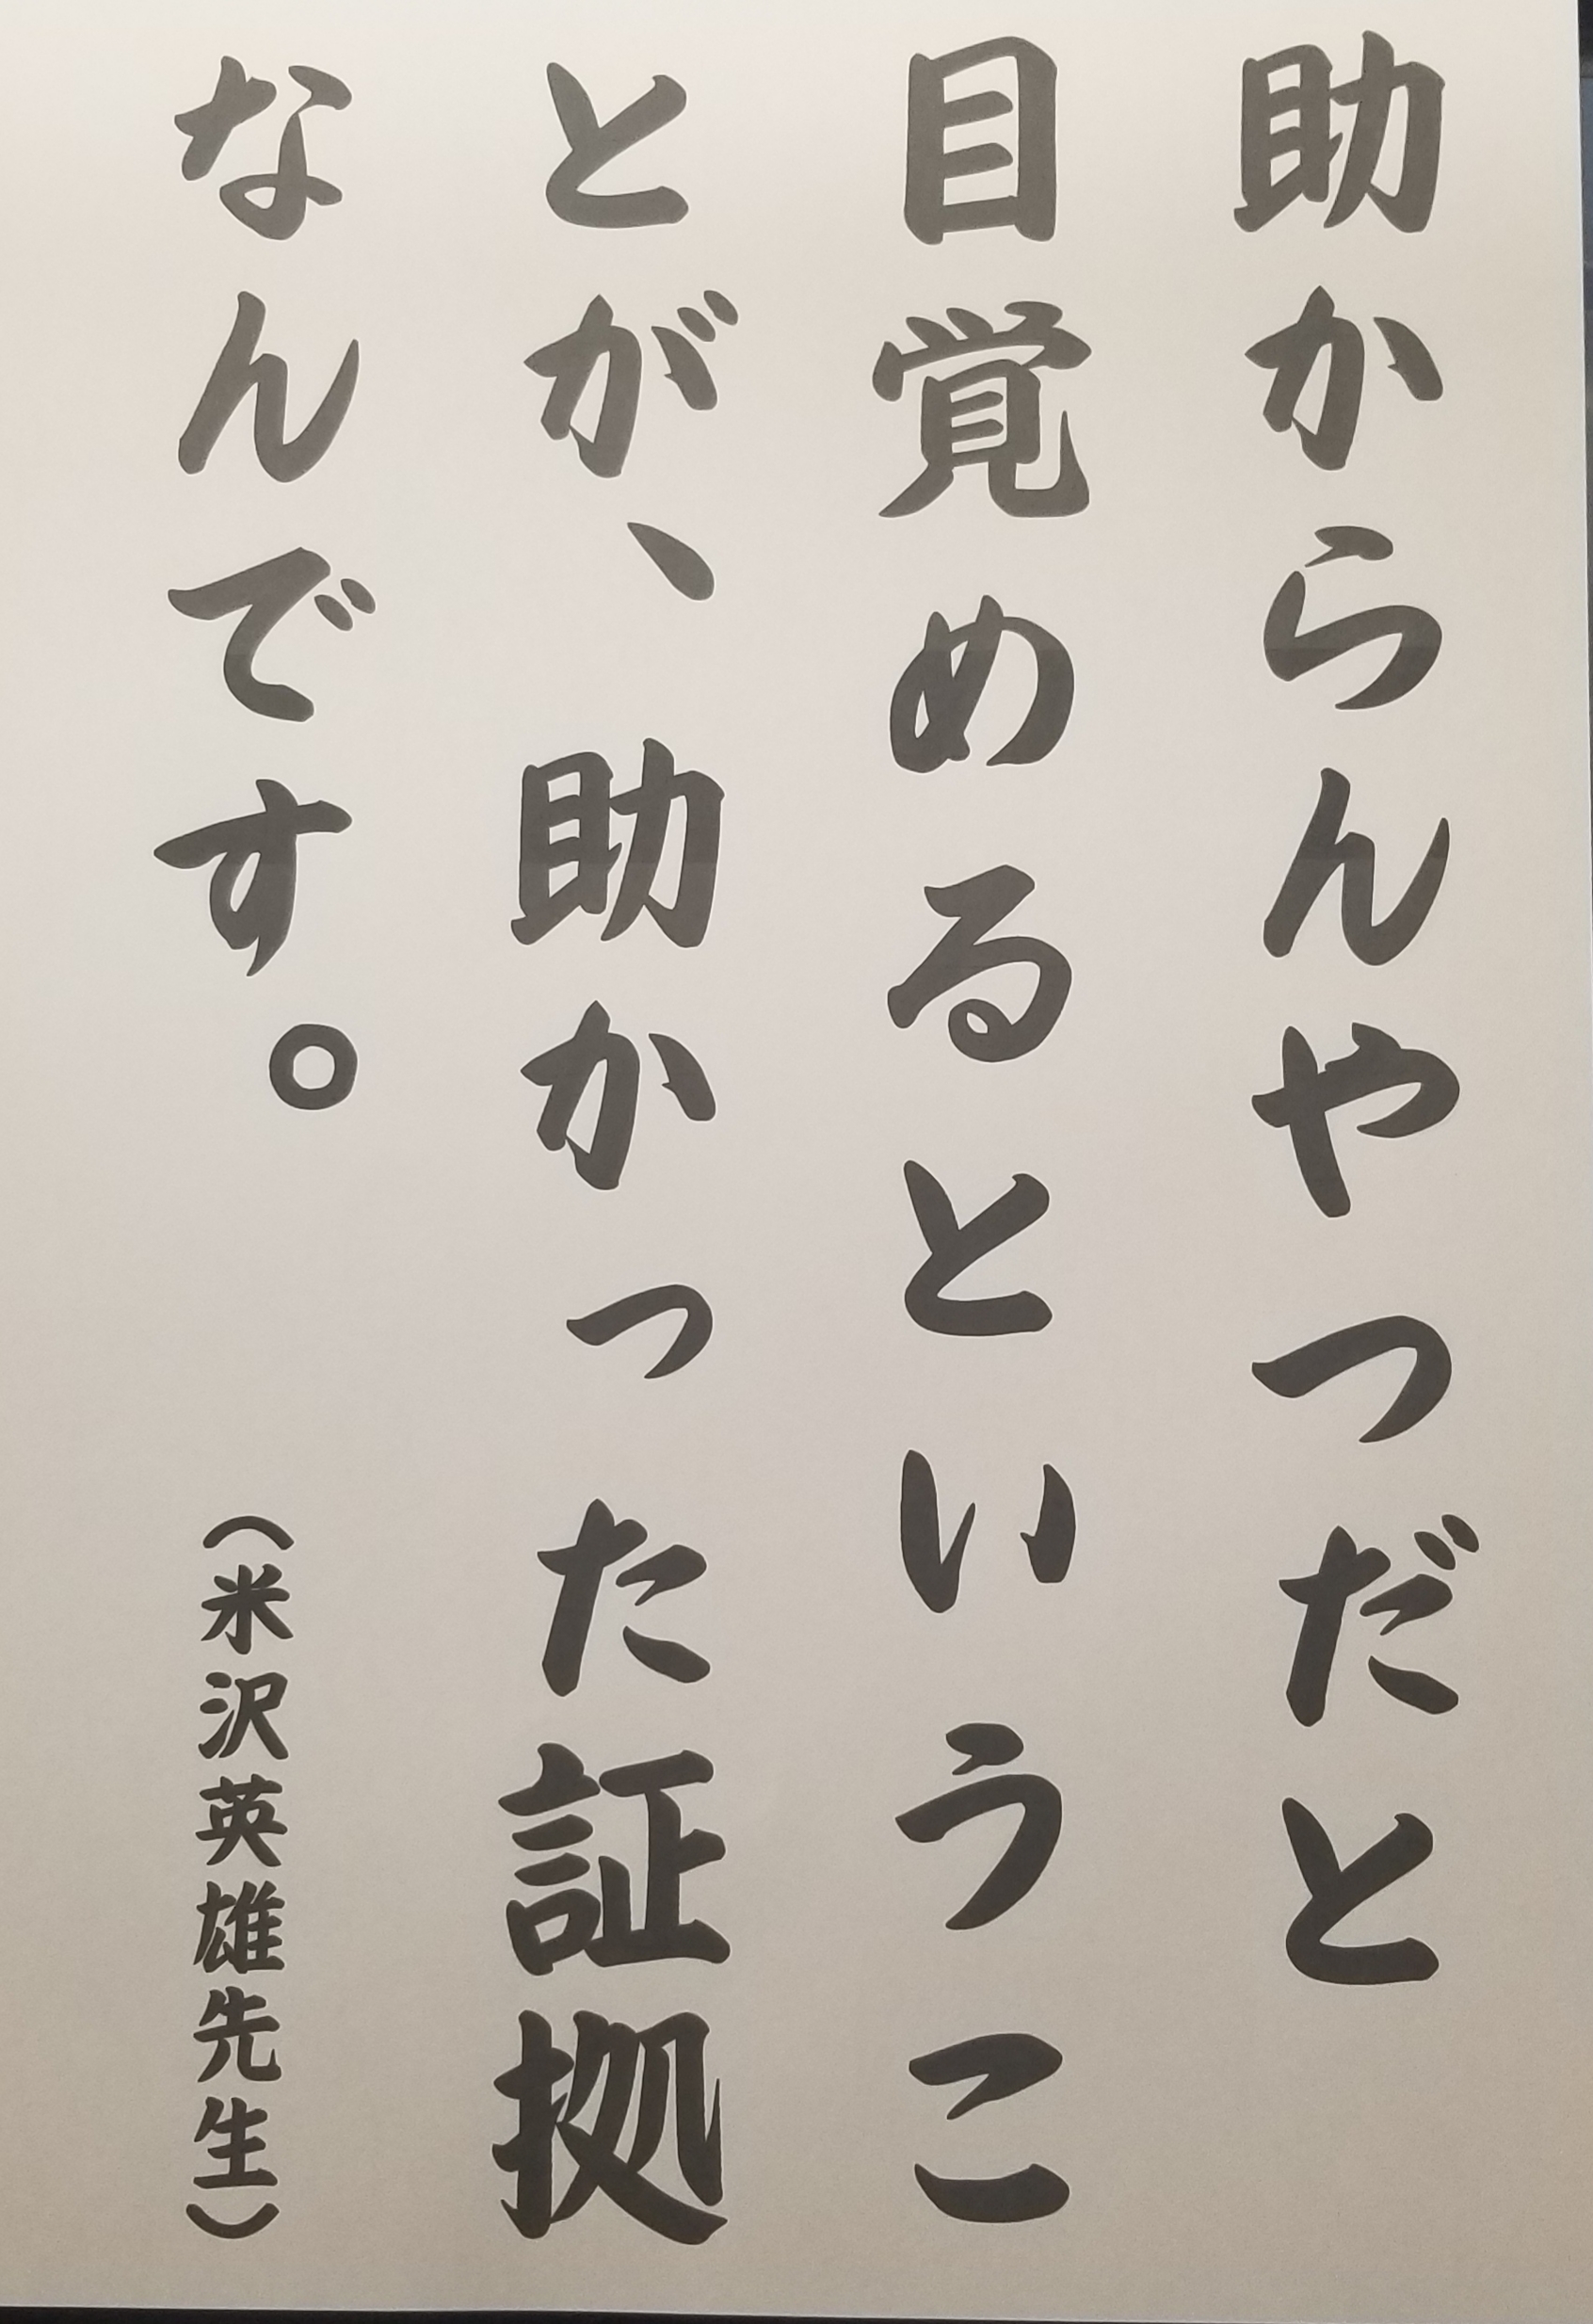 助からんやつだと
目覚めるというこ
とが、助かった証拠
なんです。
(米沢英雄先生)